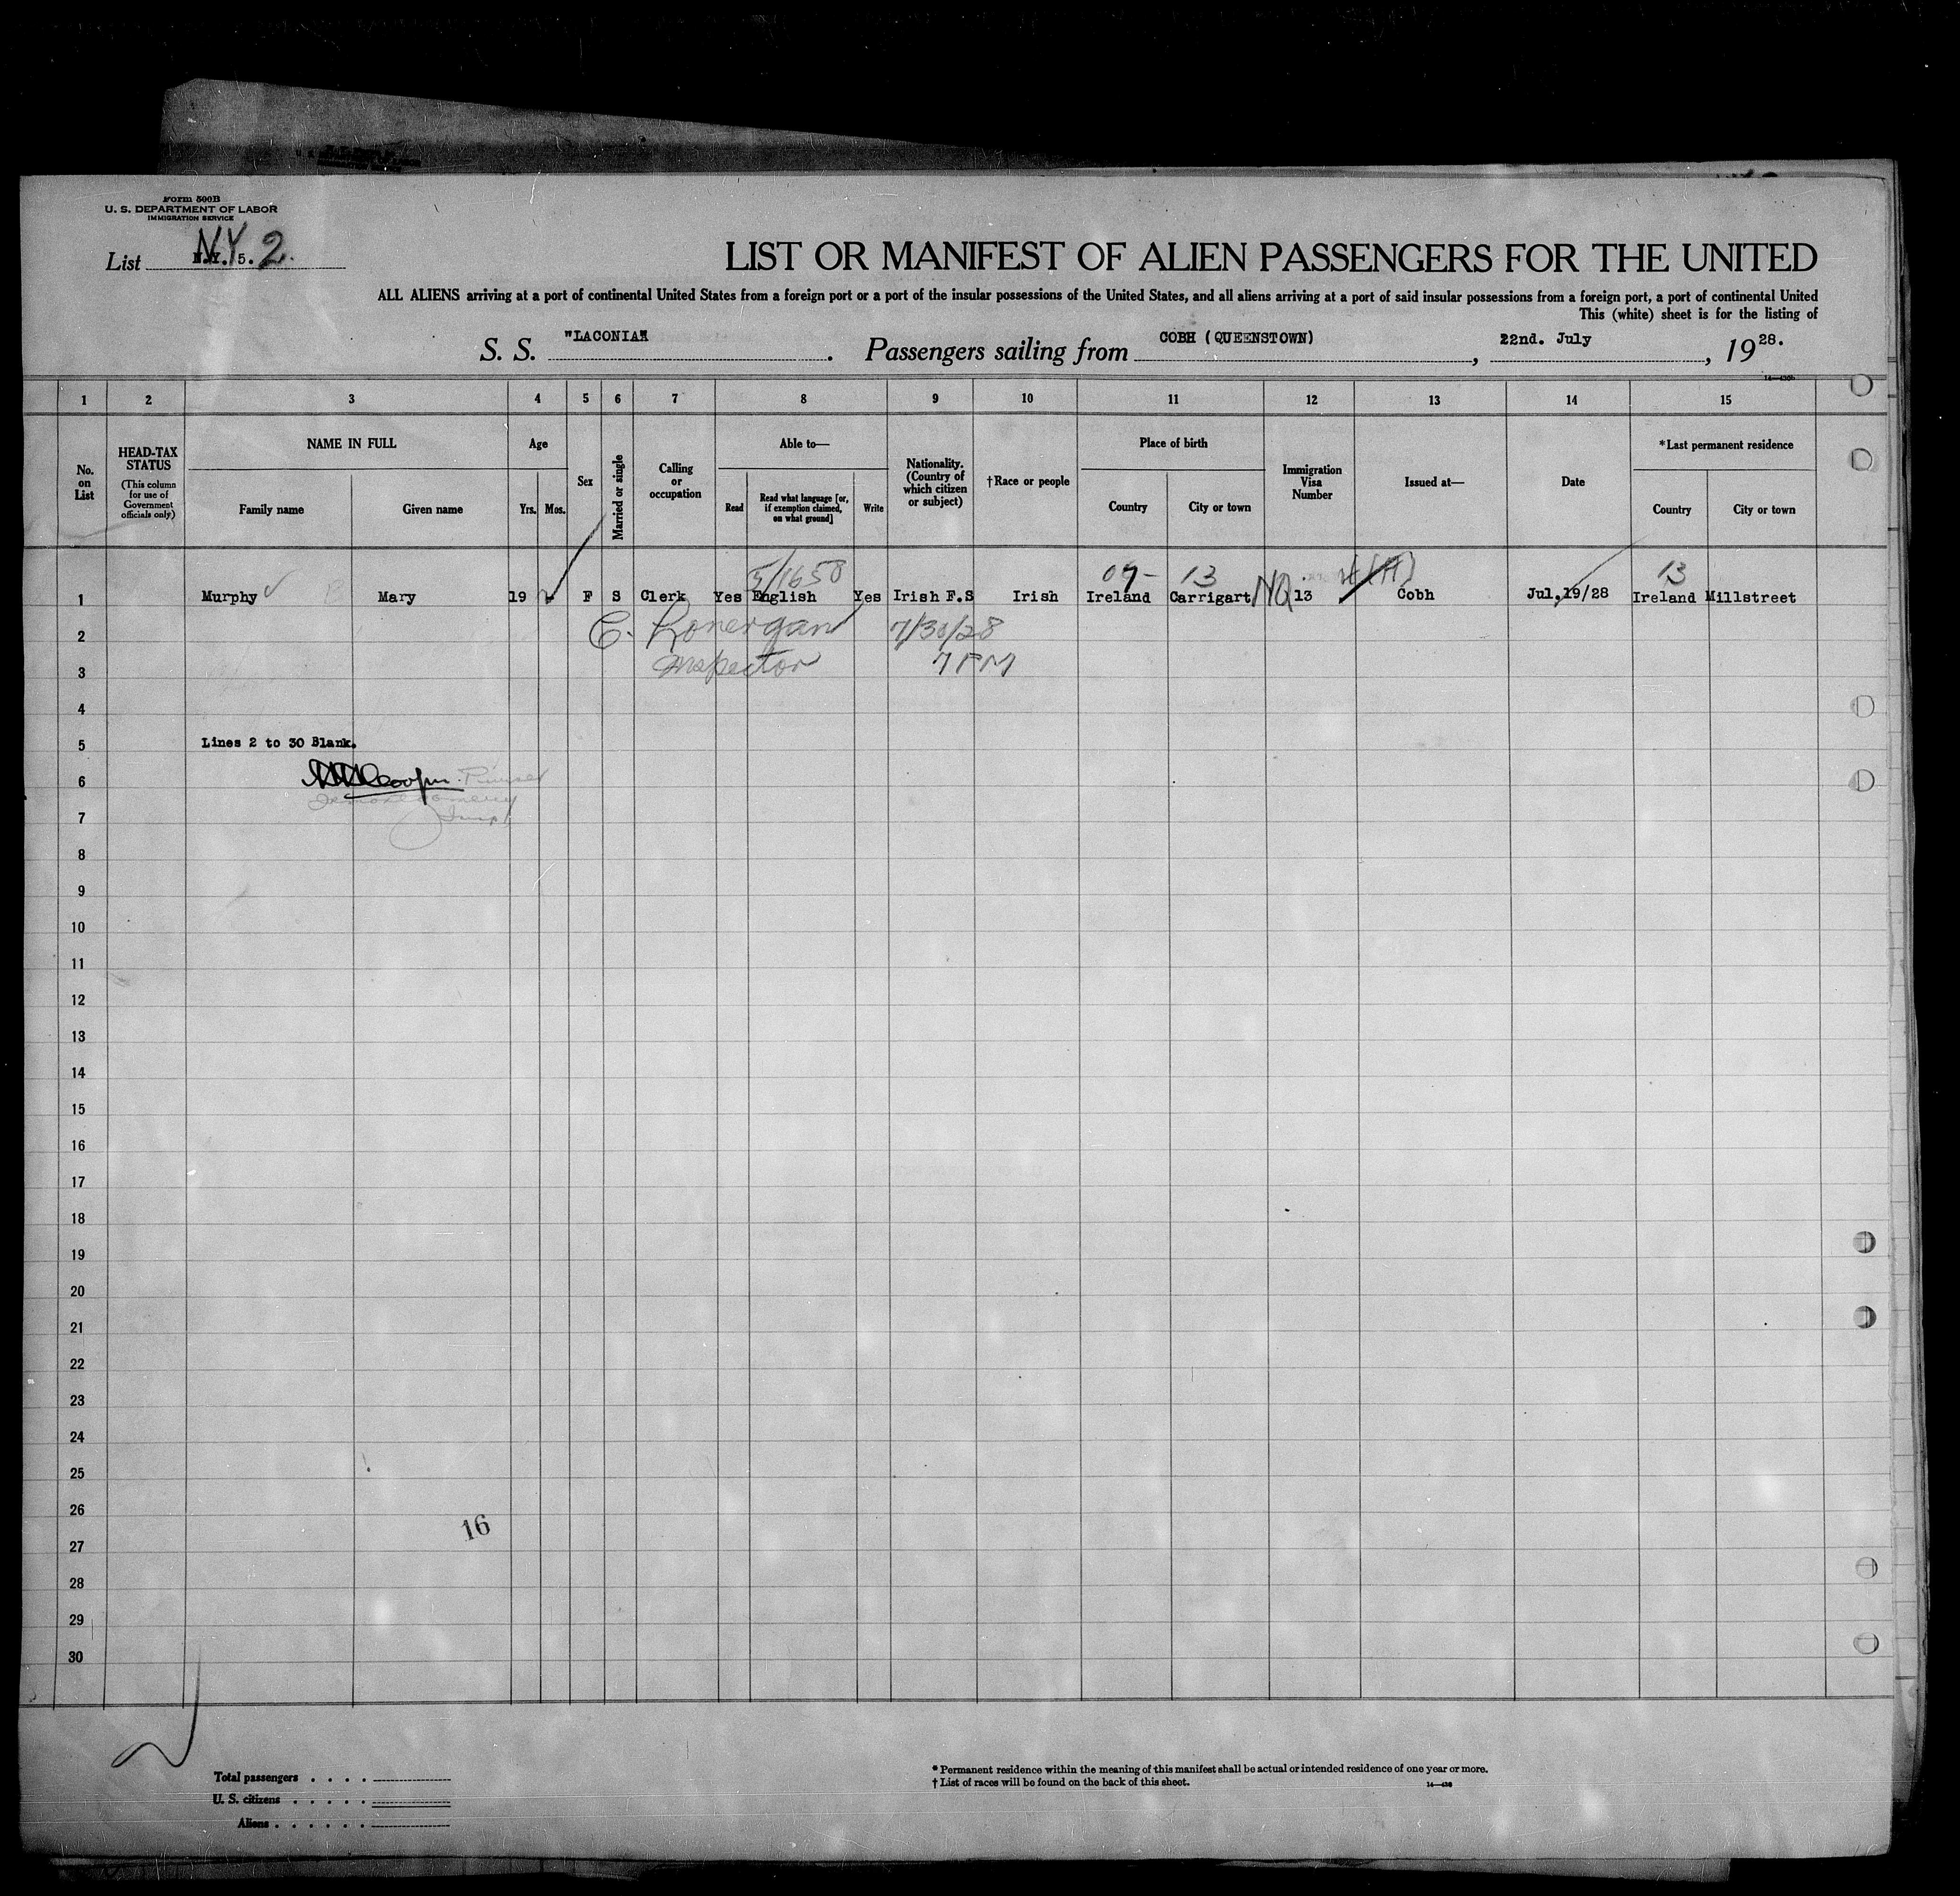 Form 500B
U. S. DEPARTMENT OF LABOR
IMMIGRATION SERVICE
List N.Y. 5. N.Y. 2.
LIST OR MANIFEST OF ALIEN PASSENGERS FOR THE UNITED
ALL ALIENS arriving at a port of continental United States from a foreign port or a port of the insular possessions of the United States, and all aliens arriving at a port of said insular possessions from a foreign port, a port of continental United
This (white) sheet is for the listing of
S. S. "LACONIA" . Passengers sailing from COBH (QUEENSTOWN) , 22nd. July , 1928.
1 2 3 4 5 6 7 8 9 10 11 12 13 14 15
No. on List
HEAD-TAX STATUS
(This column for use of Government officials only)
NAME IN FULL
Family name
Given name
Age
Yrs.
Mos.
Sex
Married or single
Calling or occupation
Able to—
Read
Read what language [or, if exemption claimed, on what ground]
Write
Nationality. (Country of which citizen or subject)
†Race or people
Place of birth
Country
City or town
Immigration Visa Number
Issued at—
Date
*Last permanent residence
Country
City or town
5/1658 09- 13 13
1 Murphy Mary 19 F S Clerk Yes English Yes Irish F.S Irish Ireland Carrigart NQ 13 Cobh Jul.19/28 Ireland Millstreet
2 C. Lonergan 7/30/28
3 Inspector 7 PM
4
5 Lines 2 to 30 Blank.
6 Cooper. Purser
7
8
9
10
11
12
13
14
15
16
17
18
19
20
21
22
23
24
25
26
16
27
28
29
30
Total passengers . . . .
U. S. citizens . . . . .
Aliens . . . . . .
* Permanent residence within the meaning of this manifest shall be actual or intended residence of one year or more.
† List of races will be found on the back of this sheet.